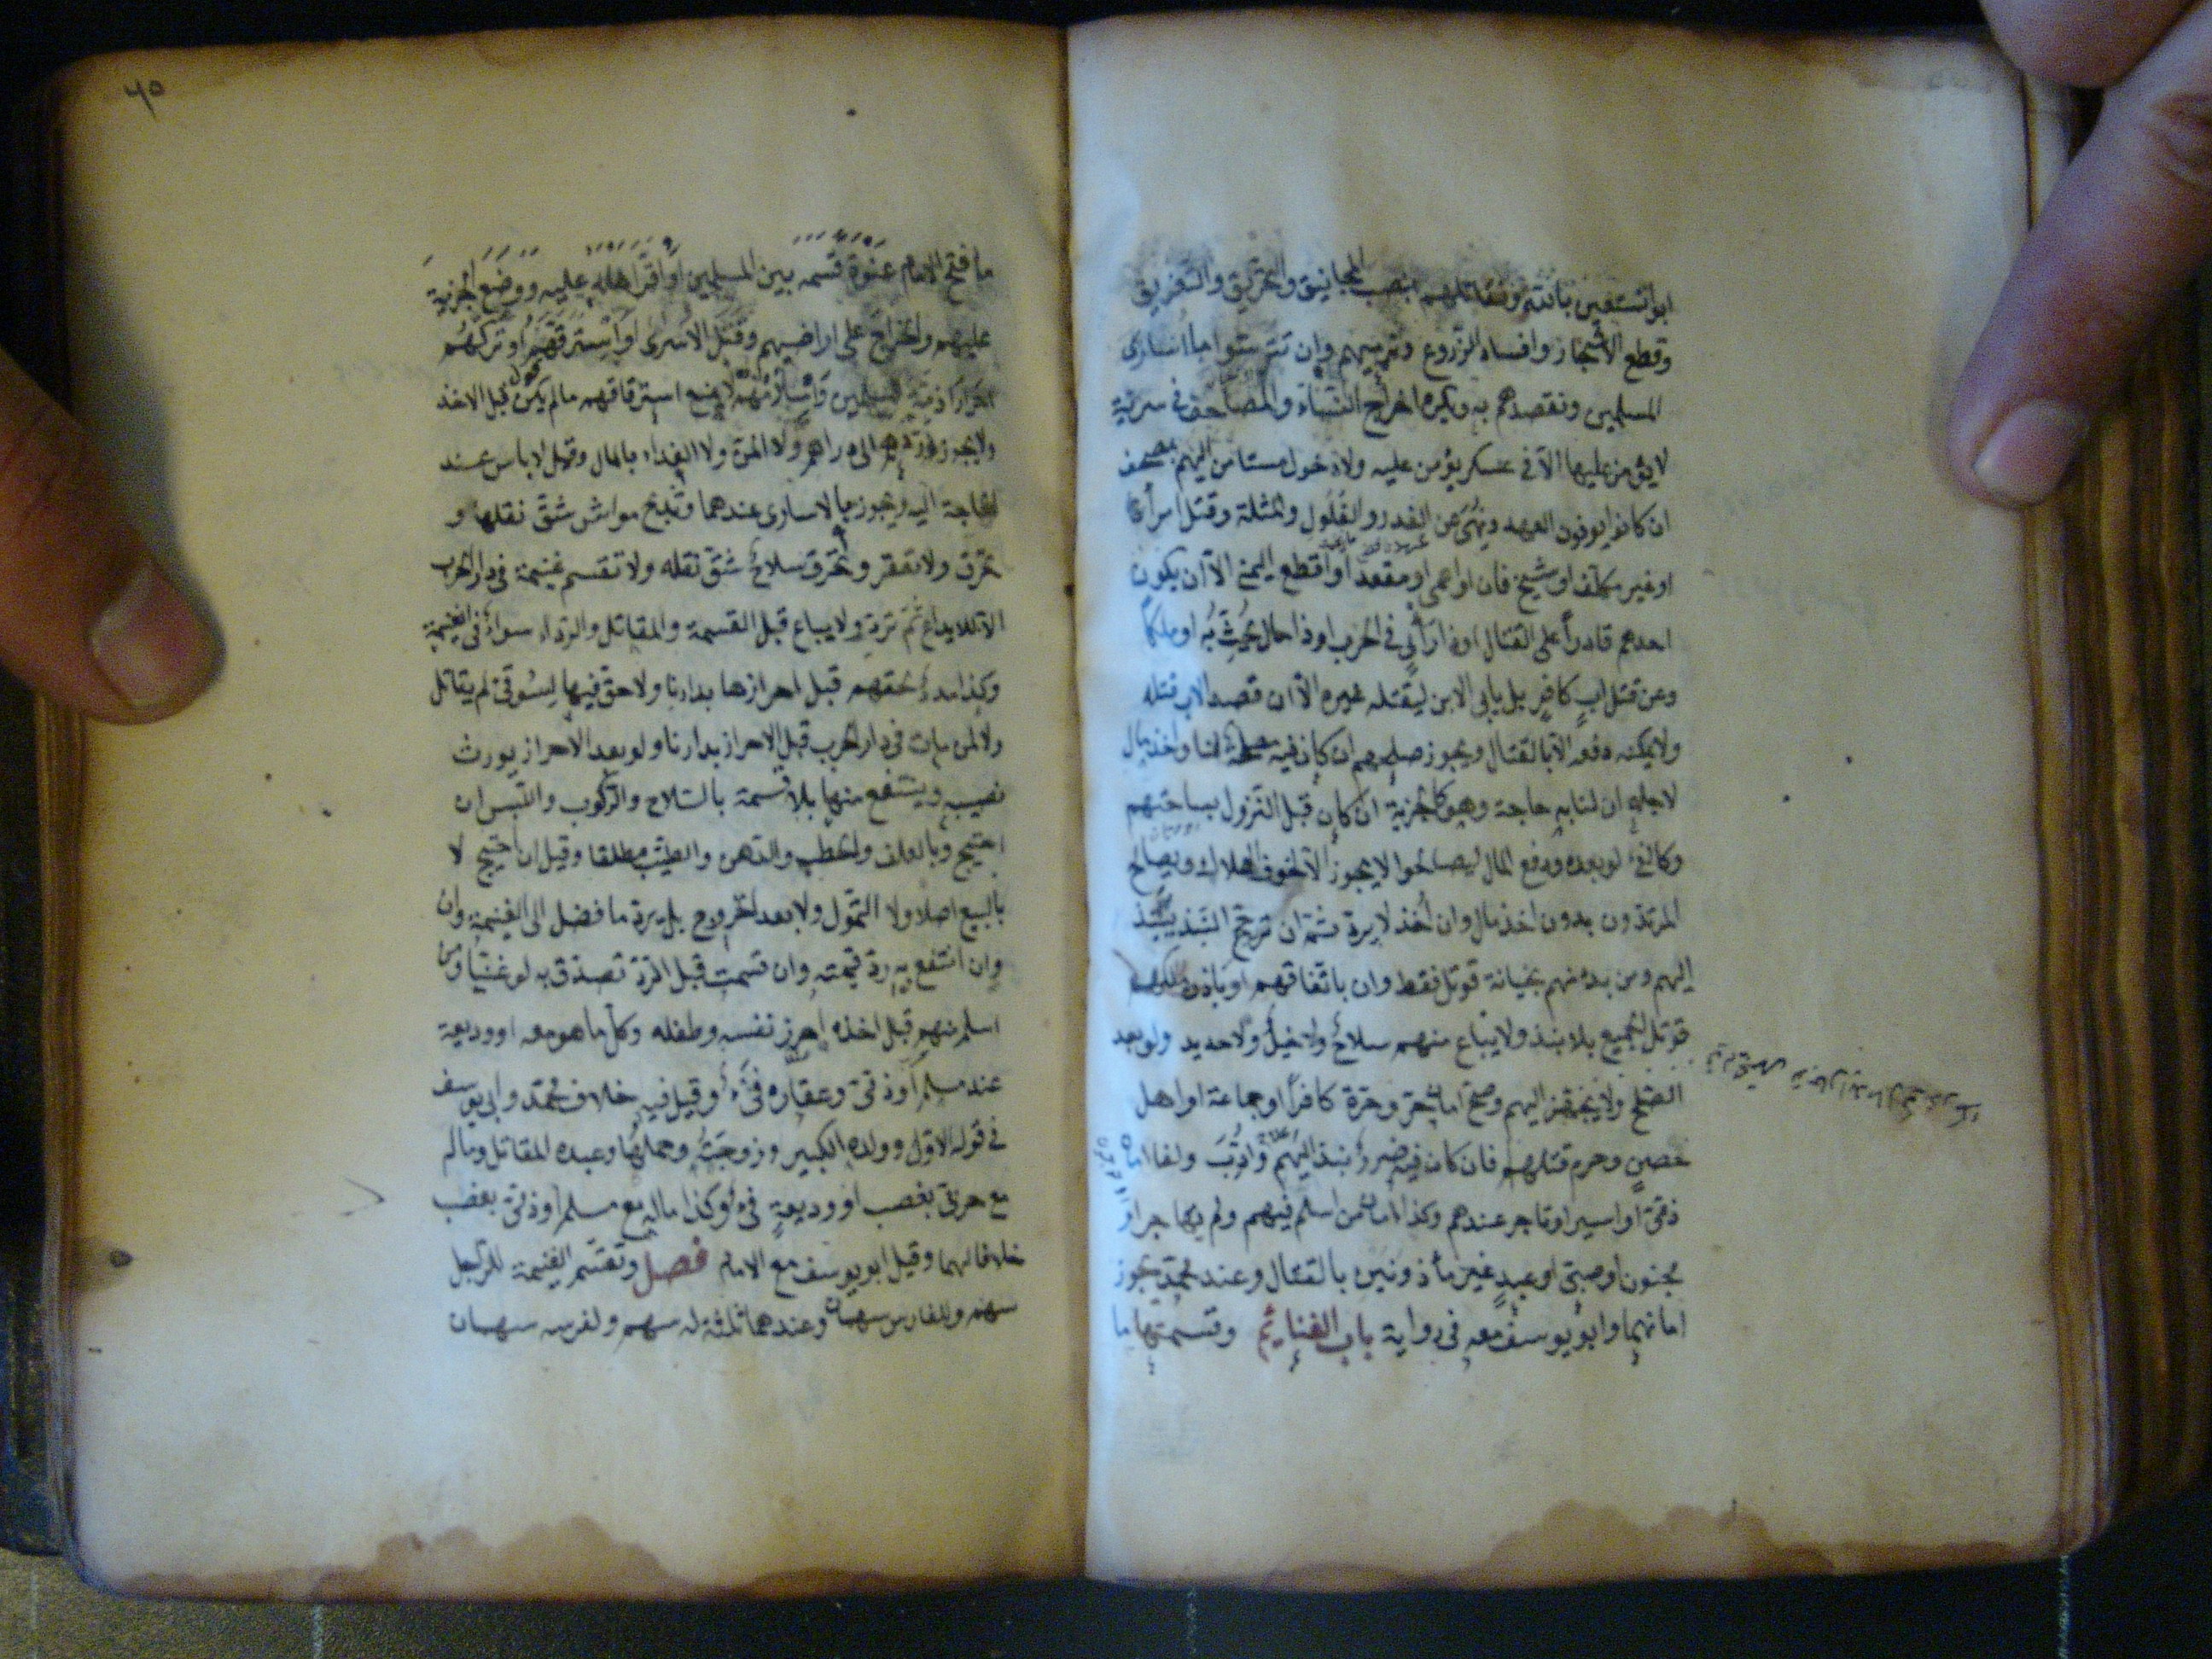 ابوا نستعين بالله ونقاتلهم بنصب المجانيق والتحريق والتغريق
وقطع الاشجار وافساد الزروع ونرميهم وان تترسوا باسارى
المسلمين ونقصدهم به ويكره اخراج النساء والمصاحف في سرية
لا يؤمن عليها الا في عسكر يؤمن عليه ولا دخول مستامن اليهم بمصحف
ان كانوا يوفون العهد ونهى عن الغدر والغلول والمثلة وقتل امرأة
او غير مكلف او شيخ فان او اعمى او مقعد او اقطع اليمنى الا ان يكون
احدهم قادراً على القتال او ذا رأي في الحرب او ذا مال يحث به او ملكاً
وعن قتل اب كافر بل يابى الابن ليقتله غيره الا ان قصد الاب قتله
ولا يمكنه دفعه الا بالقتال ويجوز صلحهم ان كان فيه مصلحة لنا واخذ مال
لاجله ان لنا به حاجة وهو كالجزية ان كان قبل النزول بساحتهم
وكالفيء لو بعده ودفع المال ليصالحوا لا يجوز الا لخوف الهلاك ويصالح
المرتدون بدون اخذ مال وان اُخذ لا يرد ثم ان ترجح النبذ ينبذ
اليهم ومن بدء منهم بخيانة قوتل فقط وان باتفاقهم او باذن ملكهم
قوتل الجميع بلا نبذ ولا يباع منهم سلاح ولا خيل ولا حديد ولو بعد
الصلح ولا يجهز اليهم وصح امان حر وحرة كافراً او جماعة او اهل
حصن وحرم قتلهم فان كان فيه ضرر نبذ اليهم وادب ولغا امان
ذمي او اسير او تاجر عندهم وكذا امان من اسلم فيهم ولم يهاجر او
مجنون او صبي او عبد غير مأذونين بالقتال وعند محمد يجوز
امانهما وابو يوسف معه في رواية باب الغنائم وقسمتها ما
٦٥
ما فتح الامام عنوة قسمه بين المسلمين او اقر اهله عليه ووضع الجزية
عليهم والخراج على اراضيهم وقتل الاسرى او استرقهم او تركهم
احرارا ذمة للمسلمين واسلامهم لا يمنع استرقاقهم ما لم يكن قبل الاخذ
ولا يجوز ردهم الى دارهم ولا المن ولا الفداء بالمال وقيل لا باس عند
الحاجة اليه ويجوز بالاسارى عندهما وتذبح مواش شق نقلها و
تحرق ولا تعقر ويحرق سلاح شق نقله ولا تقسم غنيمة في دار الحرب
الا للايداع ثم ترد ولا يباع قبل القسمة والمقاتل والردء سواء في الغنيمة
وكذا مدد لحقهم قبل احرازها بدارنا ولا حق فيها لسوقي لم يقاتل
ولا لمن مات في دار الحرب قبل الاحراز بدارنا ولو بعد الاحراز يورث
نصيبه وينتفع منها بلا قسمة بالسلاح والركوب واللبس ان
احتيج وبالعلف والحطب والدهن والطيب مطلقا وقيل ان احتيج لا
بالبيع اصلا ولا التمول ولا بعد الخروج بل يرد ما فضل الى الغنيمة وان
وان انتفع به رد قيمته وان قسمت قبل الرد تصدق به لو غنيا ومن
اسلم منهم قبل اخذه احرز نفسه وطفله وكل ما هو معه او وديعة
عند مسلم او ذمي وعقاره فيء وقيل فيه خلاف محمد وابي يوسف
في قوله الاول وولده الكبير وزوجته وحملها وعبده المقاتل وماله
مع حربي بغصب او وديعة فيء وكذا ماله مع مسلم او ذمي بغصب
خلافا لهما وقيل ابو يوسف مع الامام فصل وتقسم الغنيمة للراجل
سهم وللفارس سهمان وعندهما ثلثة له سهم ولفرسه سهمان